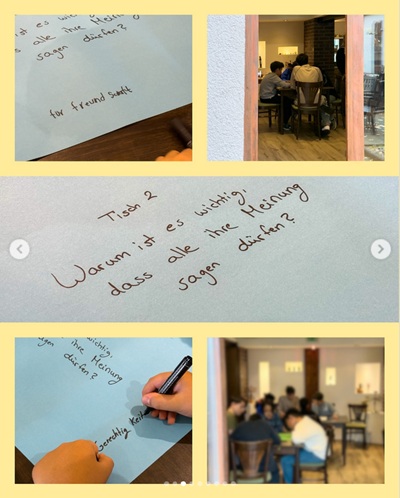 alle ihre Meinung
sagen dürfen?
für freund schaft
Tisch 2
Warum ist es wichtig,
dass alle ihre Meinung
sagen dürfen?
wichtig,
ihre Meinung
dürfen?
Gerechtig Keit